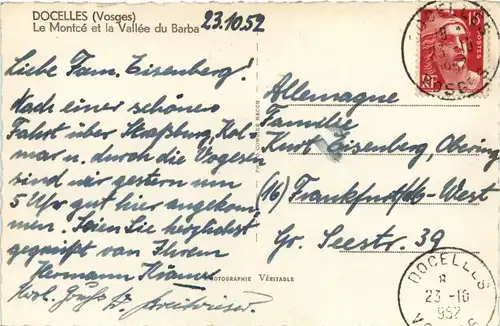 DOCELLES (Vosges)
Le Montcé et la Vallée du Barba
23.10.52
Liebe Fam. Eisenberg!
Nach einer schönen
Fahrt über Straßburg, Kol-
mar u. durch die Vogesen
sind wir gestern um
5 Uhr gut hier angekom-
men. Seien Sie herzlichst
gegrüßt von Ihrem
Hermann
Grüße
PHOTOGRAPHIE VÉRITABLE
15F
POSTES
RF
Allemagne
Familie
Kurt Eisenberg, Obering
(16) Frankfurt/M-West
Gr. Seestr. 39
DOCELLES
8
23-10
952